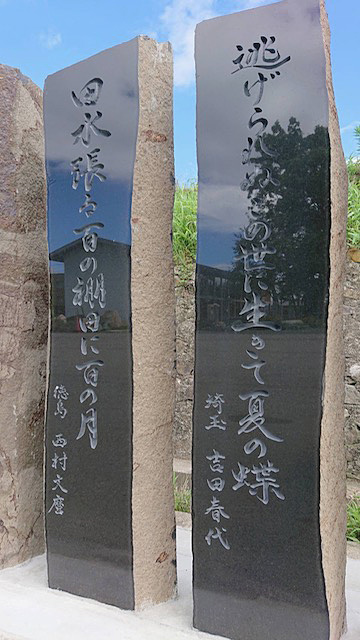 逃げられぬこの世に生きて夏の蝶
埼玉 吉田春代
田水張る百の棚田に百の月
徳島 西村文麿